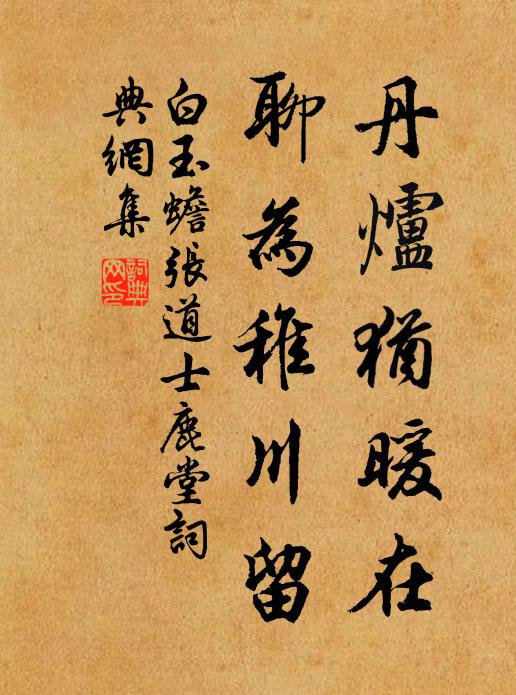 丹爐猶暖在
聊為稚川留
白玉蟾張道士鹿堂詞
典網集
詞典网印